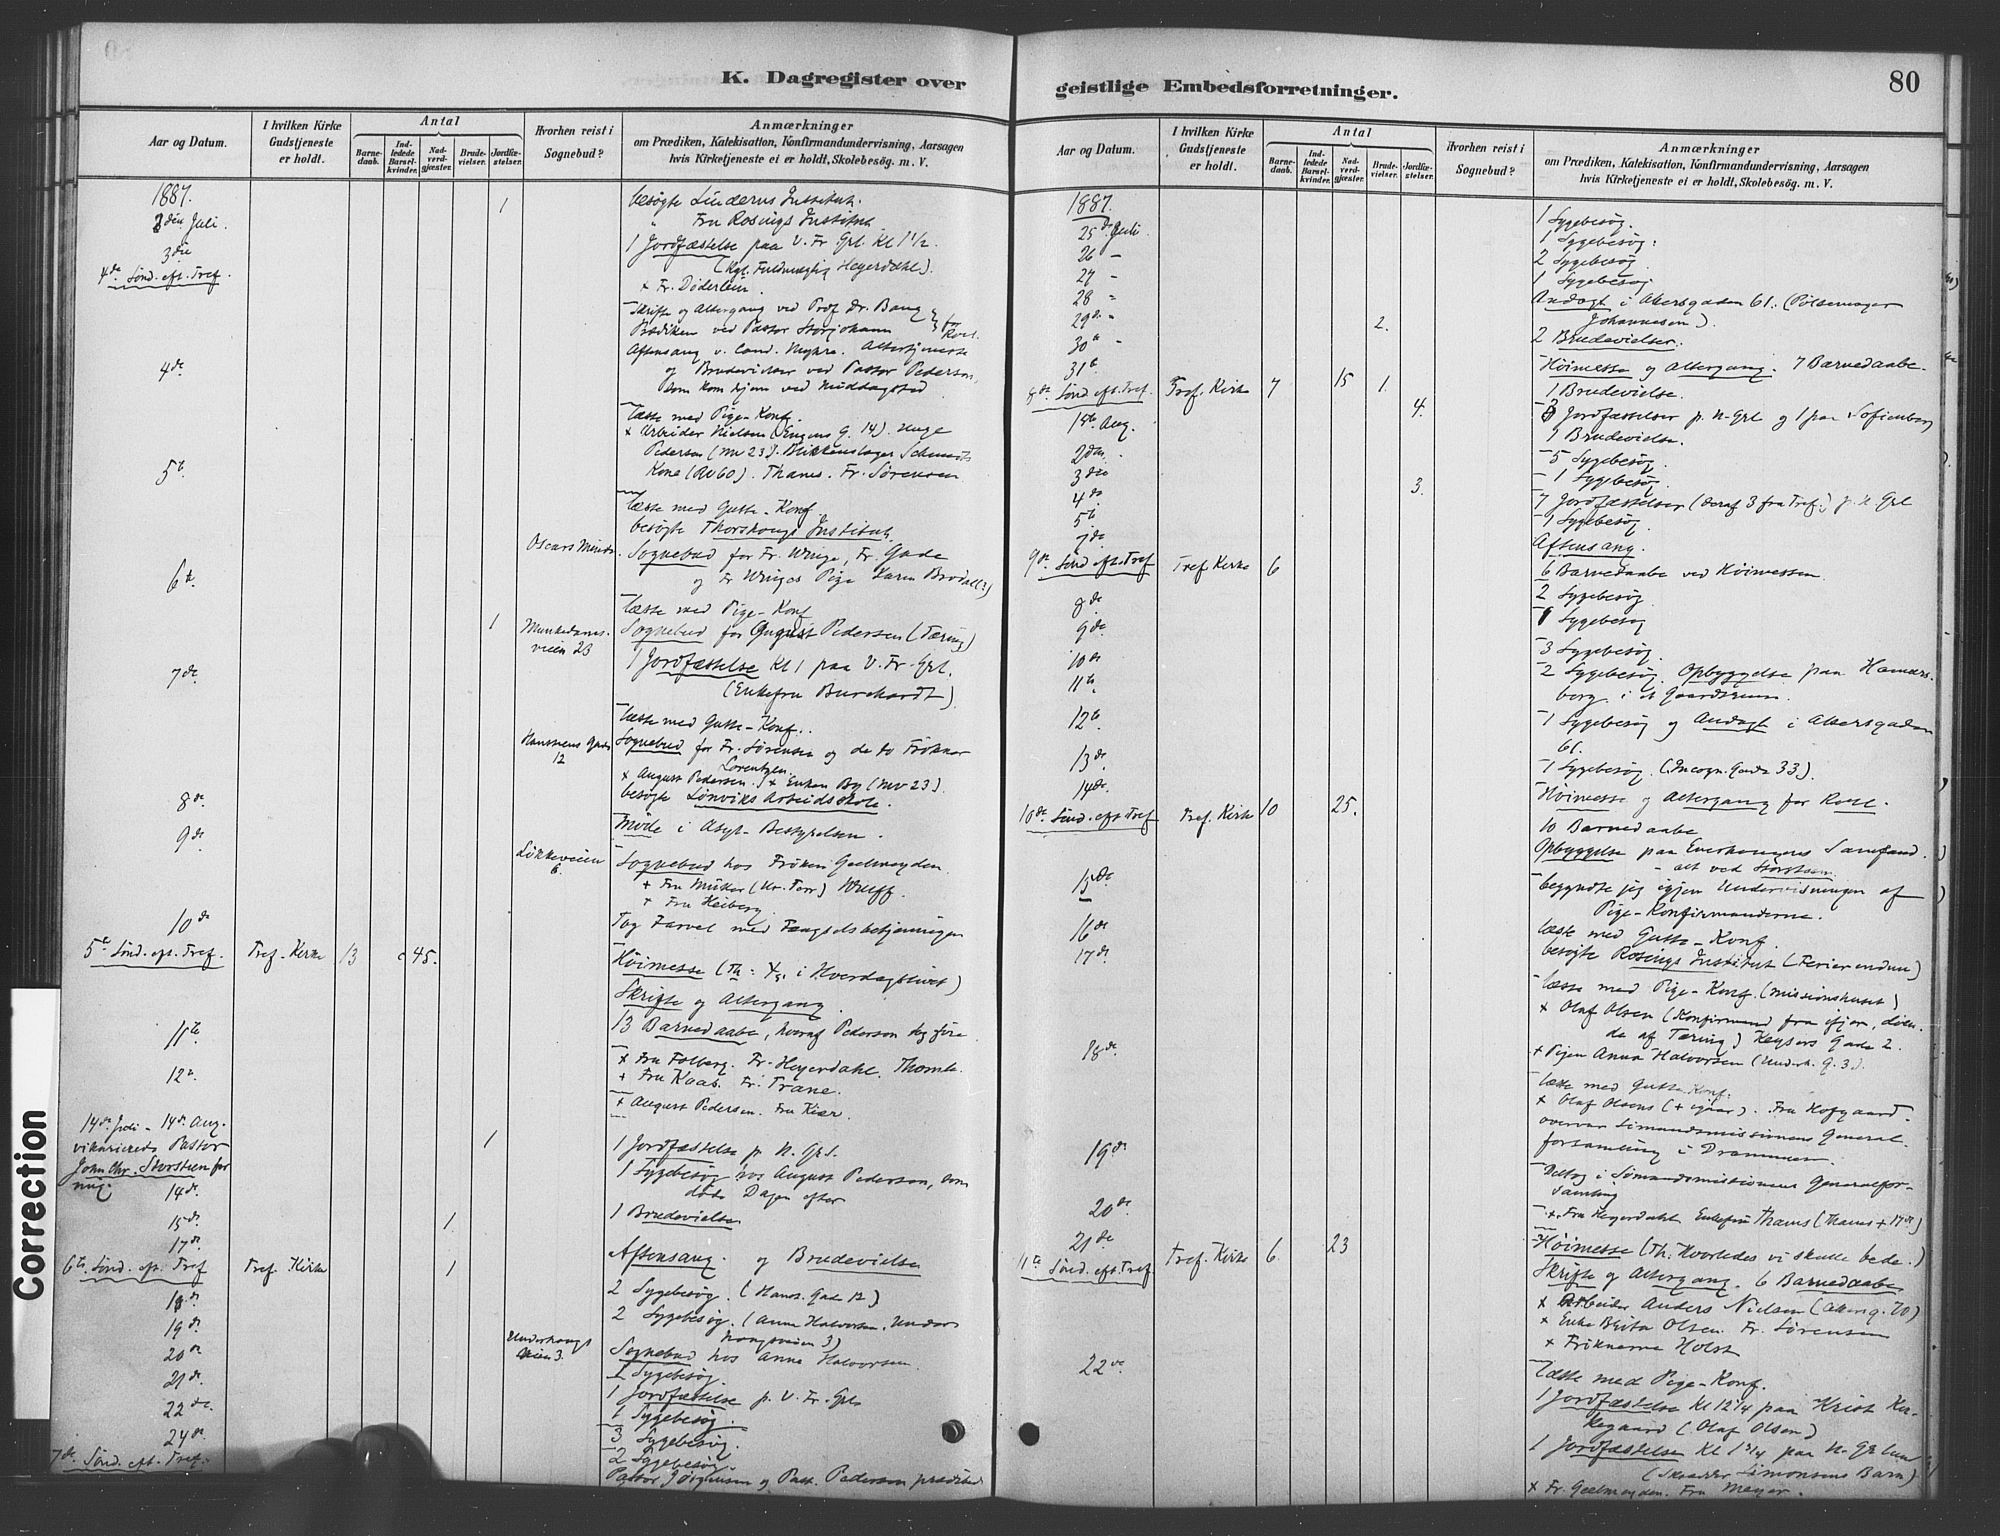 K. Dagregister over
Aar og Datum.
I hvilken Kirke
Gudstjeneste
er holdt.
Antal
Barne-
daab.
Ind-
ledede
Barsel-
kvinder.
Nad-
verd-
gjæster.
Brude-
vielser.
Jordfæ-
stelser.
Hvorhen reist i
Sognebud?
Anmærkninger
om Prædiken, Katekisation, Konfirmandundervisning, Aarsagen
hvis Kirketjeneste ei er holdt, Skolebesøg. m. V.
1887.
1
besøgte Linderns Institut.
2den Juli.
" Fru Rosings Institut
3die
1 Jordfæstelse paa V. Fr. Grl. Kl 1 1/2.
4de Sønd. eft. Tref.
(Kgl. Fuldmægtig Heyerdahl).
+ Fr. Döderlein.
Skrifte og Altergang ved Prof Dr. Bang
Prædiken ved Pastor Storjohann
Aftensang v. Cand. Myhre. Altertjeneste
4de
og Brudevielser ved Pastor Pedersen,
som kom hjem ved Middagstid
læste med Pige-Konf.
+ Arbeider Nielsen (Engens G. 14). Unge
Pedersen (Mv 23). Blikkenslager Schmidts
5te
Kone (Rv60). Thanes. Fr. Sørensen
læste med Gutte-Konf
besøgte Institut.
Oscars
Sognebud for Fr. Winge, Fr. Gade
6te
og Fr Winges Pige Karen Brodal(?)
læste med Pige-Konf
1
Munkedams-
veien 23
Sognebud for August Pedersen (Tæring)
1 Jordfæstelse Kl 1 paa V. Fr. Grl.
7de
(Enkefru Burchardt).
læste med Gutte-Konf..
12
Sognebud for Fr. Sørensen og de to Frökner
Lorentzen
+ August Pedersen. + Enken By (Mv 23).
8de
besøgte Lønviks Arbeidsskole.
9de
Møde i Asyl-Bestyrelsen.
Løkkeveien
6.
Sognebud hos Frøken Geelmuyden
+ Fru Münter Wulff.
+ Fru Heiberg
10de
Tog Farvel med Fængselsbetjeningen
5te Sønd. eft. Tref.
Tref-Kirke
13
c 45.
Høimesse (Th: i Hverdagslivet)
Skrifte og Altergang
11te
13 Barnedaabe, hvoraf Pederson
+ Fru Folberg. Fr. Heyerdahl. Thomle.
12te
+ Fru Kaab. Fr. Trane.
+ August Pedersen. Fru Kiær.
14de Juli - 14de Aug.
vikarierede Pastor
John Chr. Storsteen for
mig.
1
1 Jordfæstelse p. N. Grl.
1 Sygebesøg hos August Pedersen, som
14de
døde Dagen efter
15de
1
1 Brudevielse
17de
6te Sønd. eft. Tref
Tref. Kirke
1
Aftensang. og Brudevielse
18de
2 Sygebesøg. (Hans. Gade 12)
19de
2 Sygebesøg. (Anna Halvorsen. Under-
haugsveien 3)
20de
Underhaugs
veien 3.
Sognebud hos Anna Halvorsen.
21de
1 Sygebesøg.
22de
1 Jordfæstelse p. V. Fr. Grl.
1 Sygebesøg.
24de
3 Sygebesøg.
7de Sønd. eft. Tref.
2 Sygebesøg.
Pastor Jørgensen og Past. Pederson prædiked
geistlige Embedsforretninger.
80
Aar og Datum.
I hvilken Kirke
Gudstjeneste
er holdt.
Antal
Barne-
daab.
Ind-
ledede
Barsel-
kvinder.
Nad-
verd-
gjæster.
Brude-
vielser.
Jordfæ-
stelser.
Hvorhen reist i
Sognebud?
Anmærkninger
om Prædiken, Katekisation, Konfirmandundervisning, Aarsagen
hvis Kirketjeneste ei er holdt, Skolebesøg. m. V.
1887.
1 Sygebesøg.
25de Juli.
1 Sygebesøg.
26 -
2 Sygebesøg
27 -
1 Sygebesøg
28 "
Andagt i Akersgaden 61. (Pølsemager
29de "
2.
Johannesen).
30te "
2 Brudevielser.
31te
Høimesse og Altergang. 7 Barnedaabe.
8de Sønd. eft. Tref.
Tref. Kirke
7
15
1.
1 Brudevielse.
4.
3 Jordfæstelser p. N-Grl og 1 paa Sofienberg
1ste Aug.
1 Brudevielse.
2den
5 Sygebesøg.
3die
1 Sygebesøg
4de
3.
7 Jordfæstelser (deraf 3 fra Tref.) p. N Grl
5te
1 Sygebesøg
7de
Aftensang.
9de Sønd. eft. Tref
Tref Kirke
6
6 Barnedaabe ved Høimessen.
2 Sygebesøg
8de
1 Sygebesøg
9de
3 Sygebesøg.
10de
2 Sygebesøg. Opbyggelse paa Hamars-
11te
berg i et Gaardsrum.
12te
1 Sygebesøg og Andagt i Akersgaden
61.
13de
1 Sygebesøg. (Incogn. Gade 33).
14de
Høimesse og Altergang for
10de Sønd. eft. Tref
Tref. Kirke
10
25.
10 Barnedaabe
Opbyggelse paa Samfund.
- alt ved Storsteen.
15de
begyndte jeg igjen Undervisningen af
Pige-Konfirmanderne.
16de
læste med Gutte-Konf.
17de
besøgte Rosings Institut (Ferier endnu)
læste med Pige-Konf. (Missionshuset)
+ Olaf Olsen (Konfirmand fra ifjor, døen-
de af Tæring) Keysers Gade 2.
18de
+ Pigen Anna Halvorsen (Underh. G. 3).
læste med Gutte Konf.
+ Olaf Olsens (+ igaar). Fru Hofgaard.
overvar Sømandsmissionens General-
19de
forsamling i Drammen.
Deltog i Sømandsmissionens Generalfor-
samling
20de
+ Fru Heyerdahl Enkefru Thams (Thams + 17de)
21de
11te Sønd. eft. Tref
Tref. Kirke
6.
23
Høimesse (Th. Hvorledes vi skulle bede.)
Skrifte og Altergang. 6 Barnedaabe
+ Arbeider Anders Nielsen (Akersg. 70)
+ Enke Berta Olsen. Fr. Sørensen
+ Frøknerne Holst
22de
læste med Pige-Konf.
1 Jordfæstelse Kl 12 1/4 paa Krist Kir-
kegaard (Olaf Olsen)
1 Jordfæstelse Kl 1 3/4 paa N. Grlun
(Skrædder Simonsens Barn)
+ Fr. Geelmuyden. Fru Meyer.
Correction